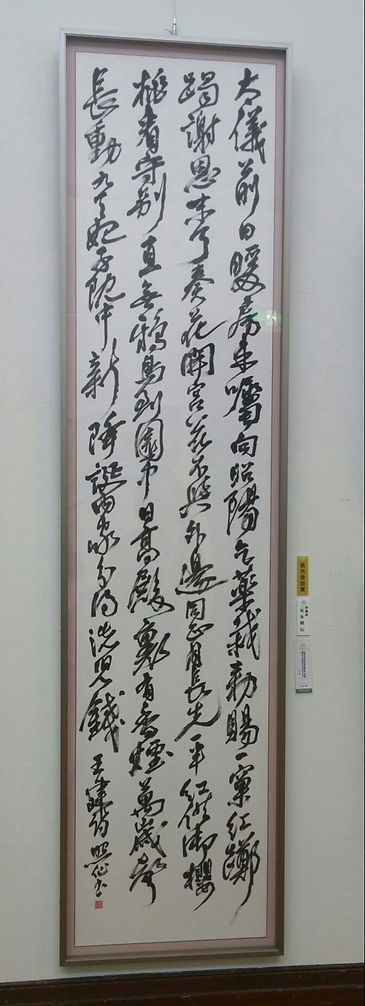 大儀前日暖房来囑向昭陽乞藥栽勅賜一窠紅躑
躅謝恩未了奏花開宮花不與外邊同正月長先一半紅供御櫻
桃看守別直無鴉鳥到園中日高殿裏有香煙萬歳聲
長動九天妃子院中新降誕内家分得洗児錢 王建詩